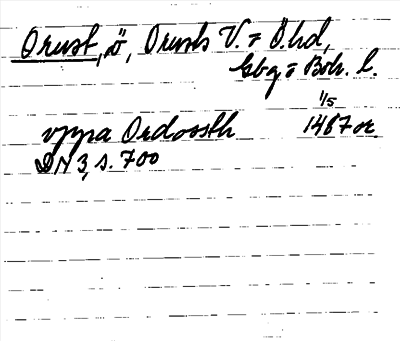 Orust, ö, Orusts V. o Ö. hd,
Gbg o Boh. l.
1/5
vppa Ordoosth 1467 or.
DN 3, s. 700